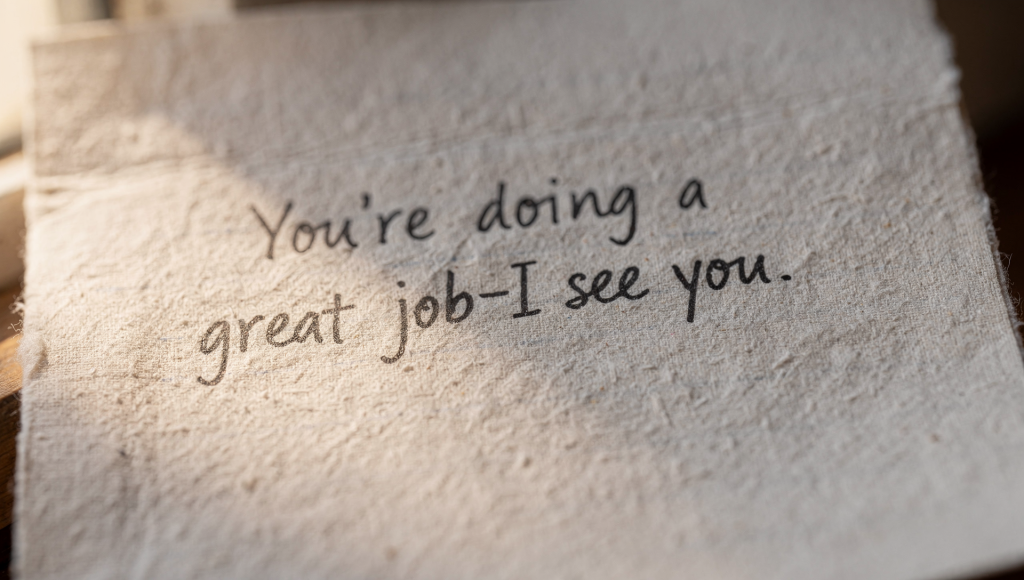 You're doing a
great job-I see you.